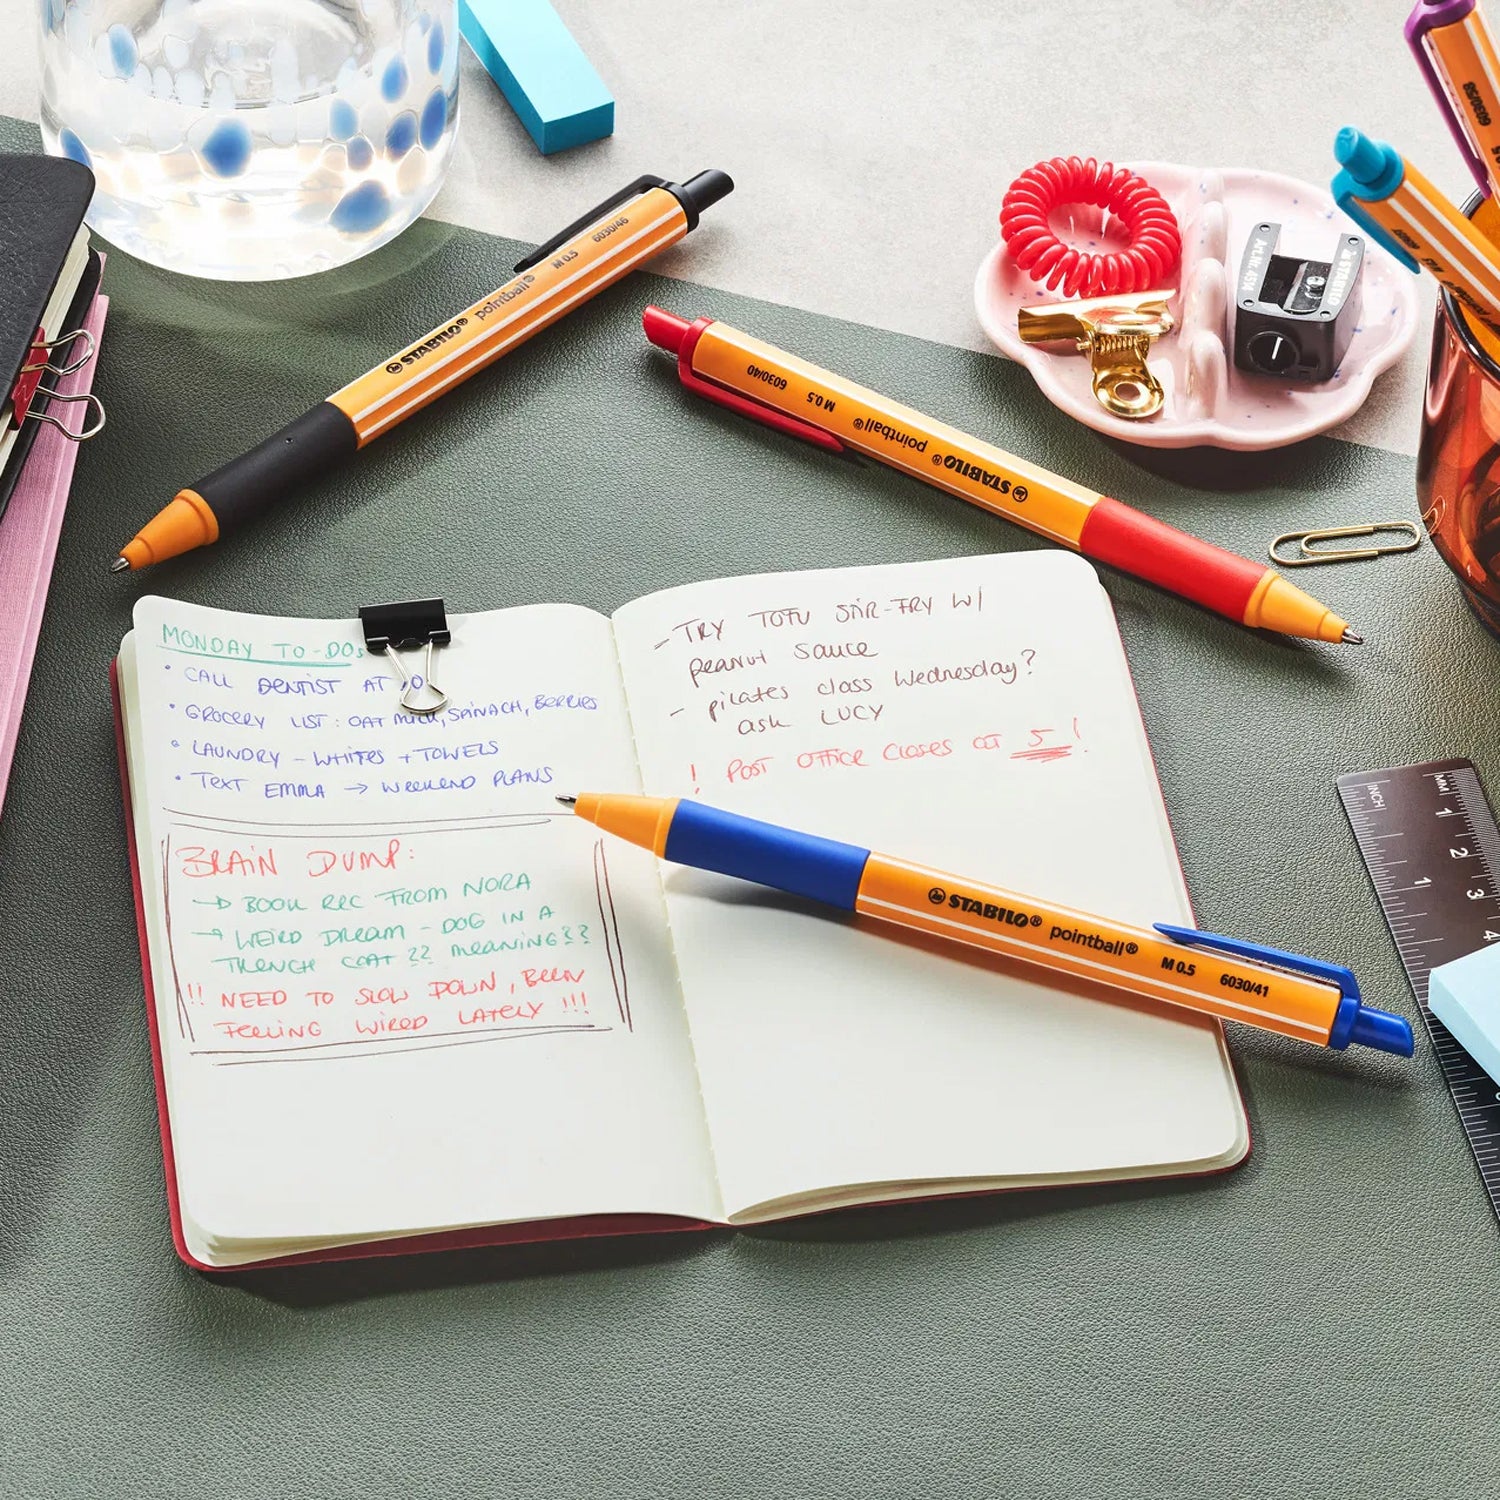 MONDAY TO-DOs
• CALL DENTIST AT
• GROCERY LIST: OAT MILK, SPINACH, BERRIES
• LAUNDRY - WHITES + TOWELS
• TEXT EMMA → WEEKEND PLANS
BRAIN DUMP:
→ BOOK REC FROM NORA
→ WEIRD DREAM - DOG IN A
TRENCH COAT ?? MEANING??
!! NEED TO SLOW DOWN, BEEN
FEELING WIRED LATELY !!!
- TRY TOFU STIR-FRY W/
peanut sauce
- pilates class Wednesday?
ask LUCY
! POST OFFICE CLOSES AT 5!
STABILO® pointball® M 0.5 6030/46
STABILO® pointball® M 0.5 6030/40
STABILO® pointball® M 0.5 6030/41
6030/58
STABILO
INCH
MM 1 2 3 4
1